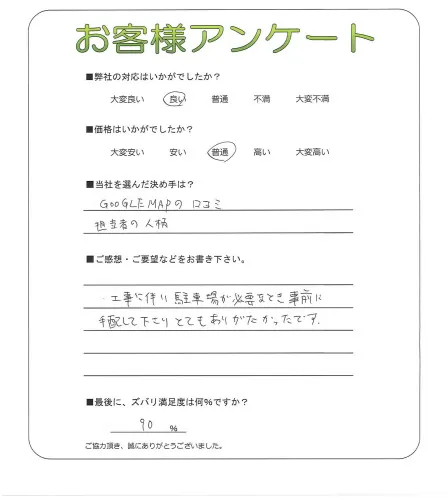 お客様アンケート
■弊社の対応はいかがでしたか?
大変良い 良い 普通 不満 大変不満
■価格はいかがでしたか?
大変安い 安い 普通 高い 大変高い
■当社を選んだ決め手は?
GOOGLE MAPの 口コミ
担当者の人柄
■ご感想・ご要望などをお書き下さい。
工事に伴い駐車場が必要なとき事前に
手配して下さりとてもありがたかったです.
■最後に、ズバリ満足度は何%ですか?
90 %
ご協力頂き、誠にありがとうございました。